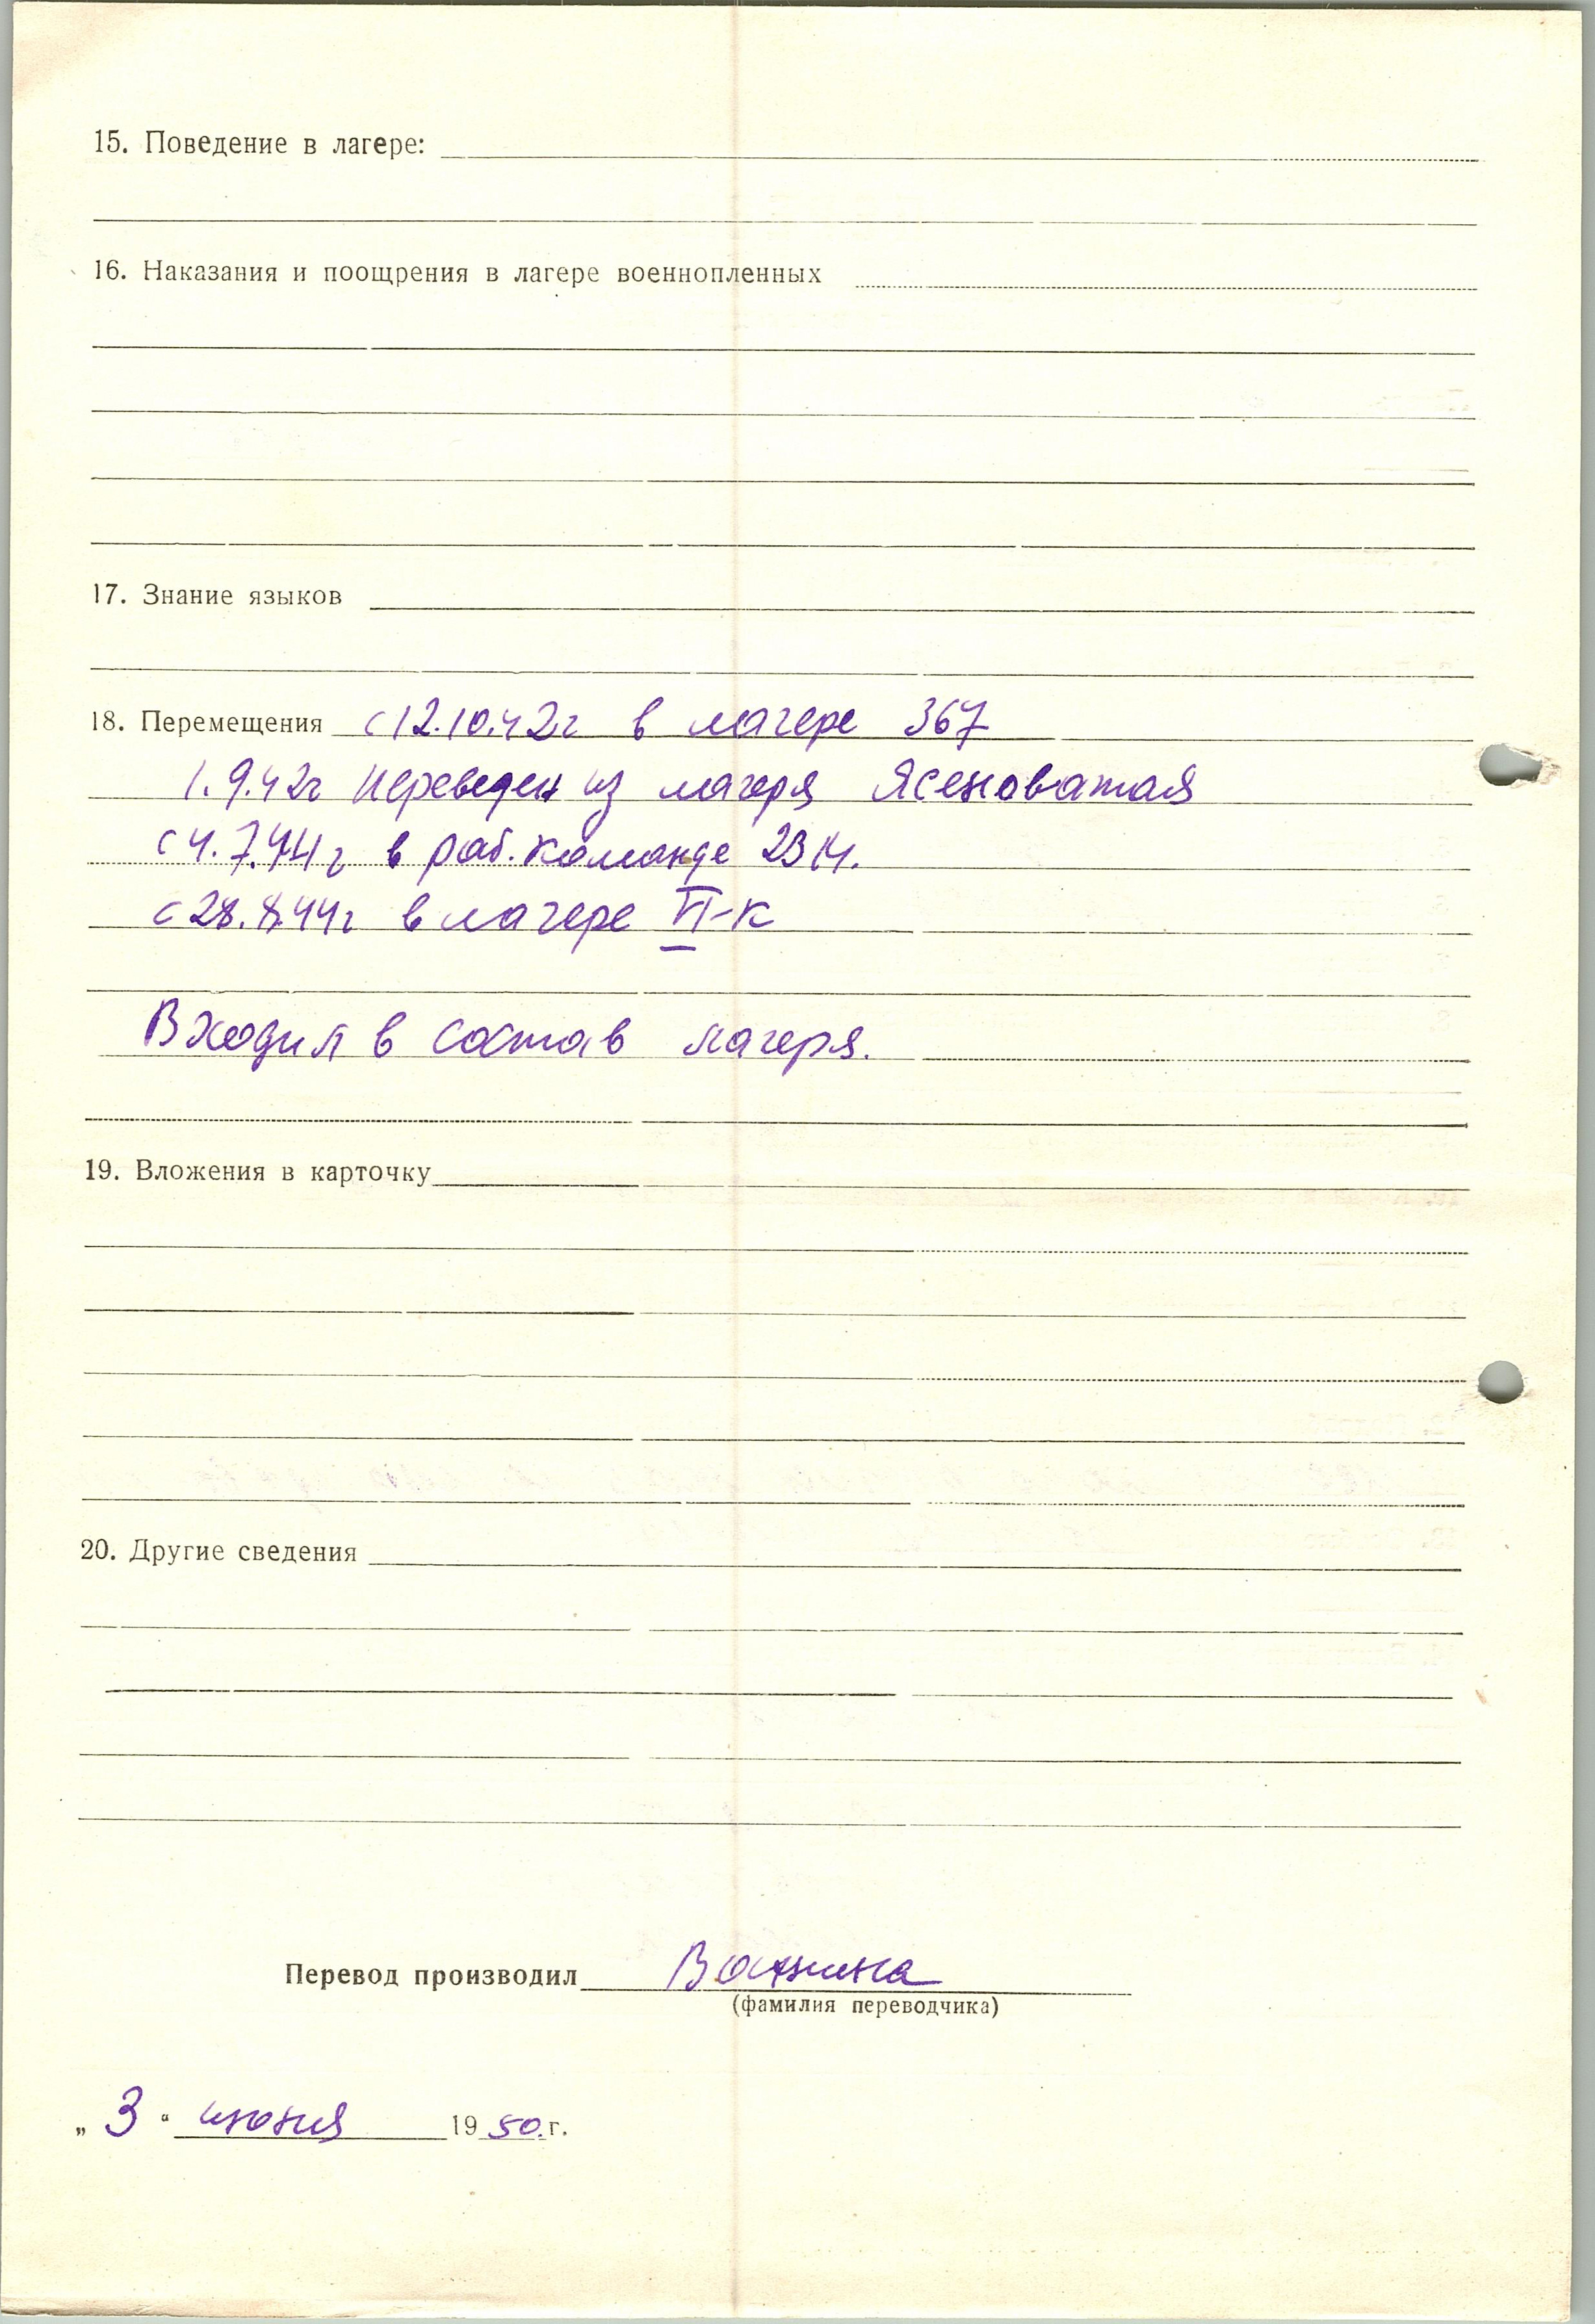 15. Поведение в лагере:
16. Наказания и поощрения в лагере военнопленных
17. Знание языков
18. Перемещения с 12.10.42г в лагере 367
1.9.42г переведен из лагеря Ясеноватая
с 4.7.44г в раб. команде 2314.
с 28.8.44г в лагере VI-К
Входил в состав лагеря.
19. Вложения в карточку
20. Другие сведения
Перевод производил
(фамилия переводчика)
„ 3 “ июня 19 50. г.